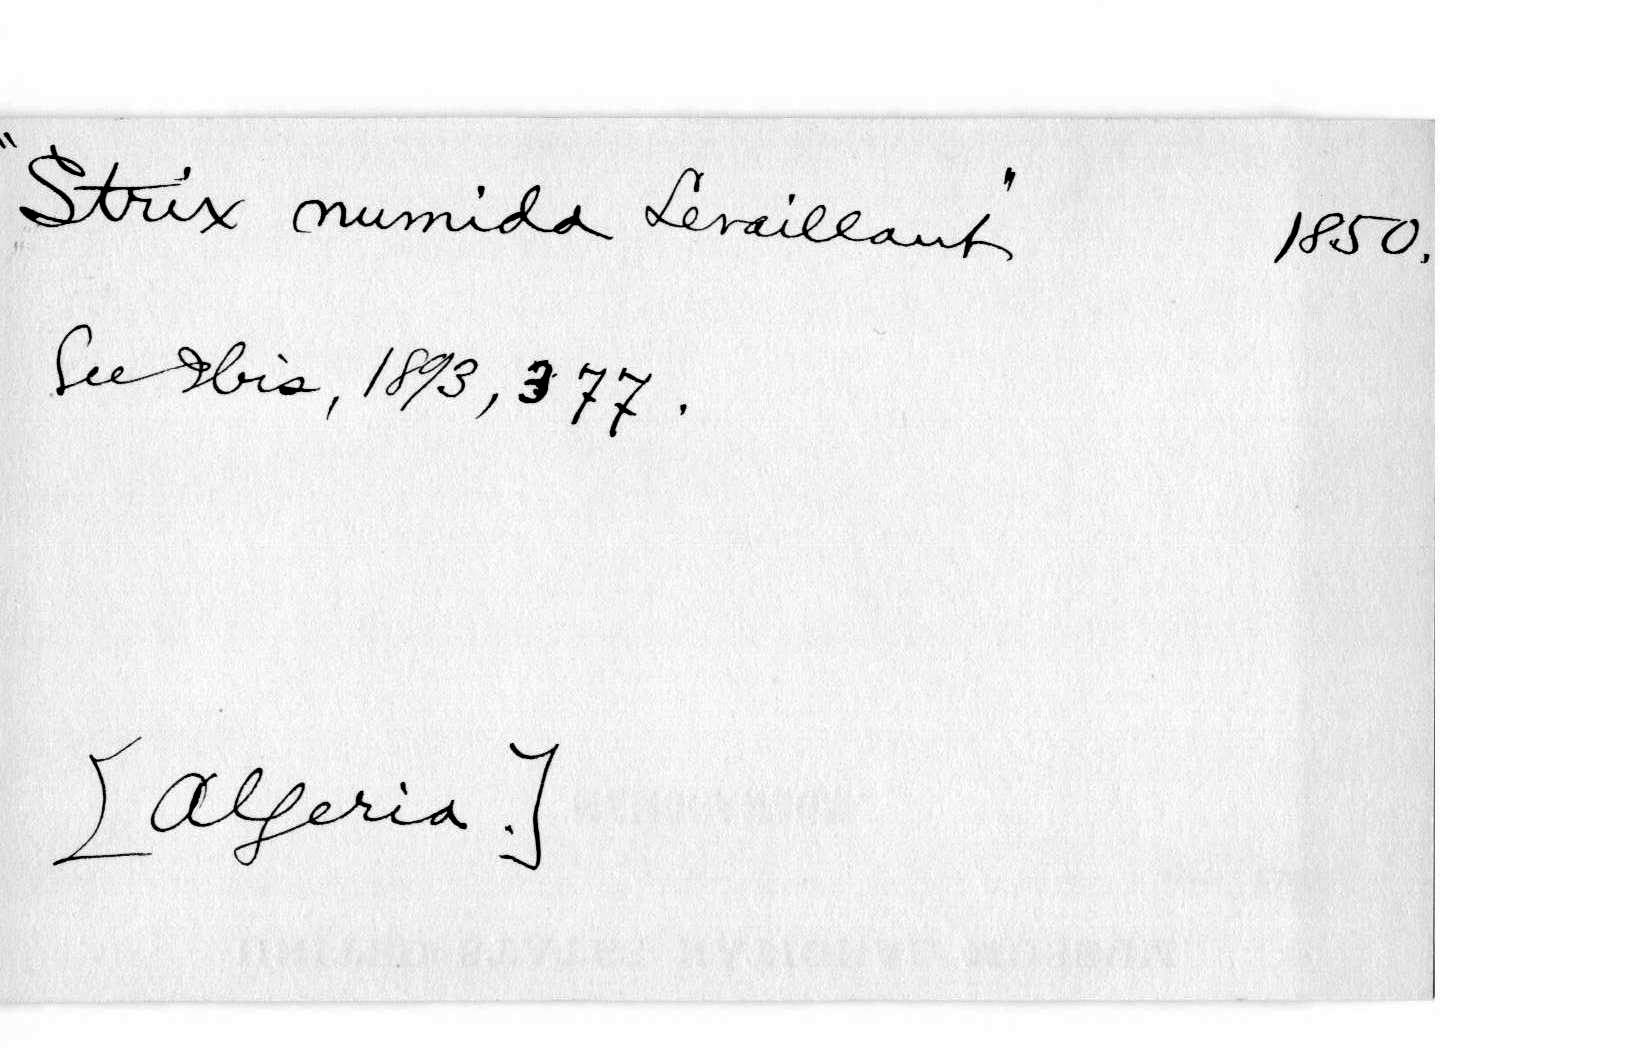 "Strix numida Levaillant" 1850.
See Ibis, 1893, 377.
[Algeria.]